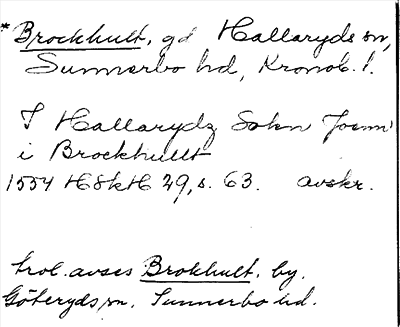 * Brockhult, gd Hallaryds sn,
Sunnerbo hd, Kronob. l.
I Hallarydz Sokn Joenn
i Brockhullt
1554 HSkH 29, s. 63. avskr.
trol. avses Brokhult, by,
Göteryds sn, Sunnerbo hd.